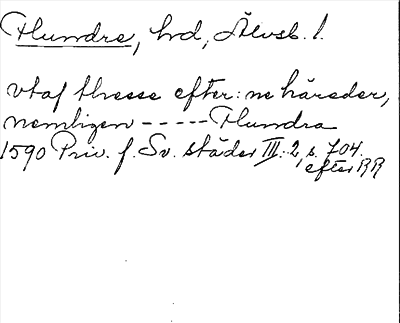 Flundre, hrd, Älvsb. l.
vtaf thesse efter: ne häreder,
nemligen ----- Flundra
1590 Priv. f. Sv. städer III: 2, s. 704.
efter RR